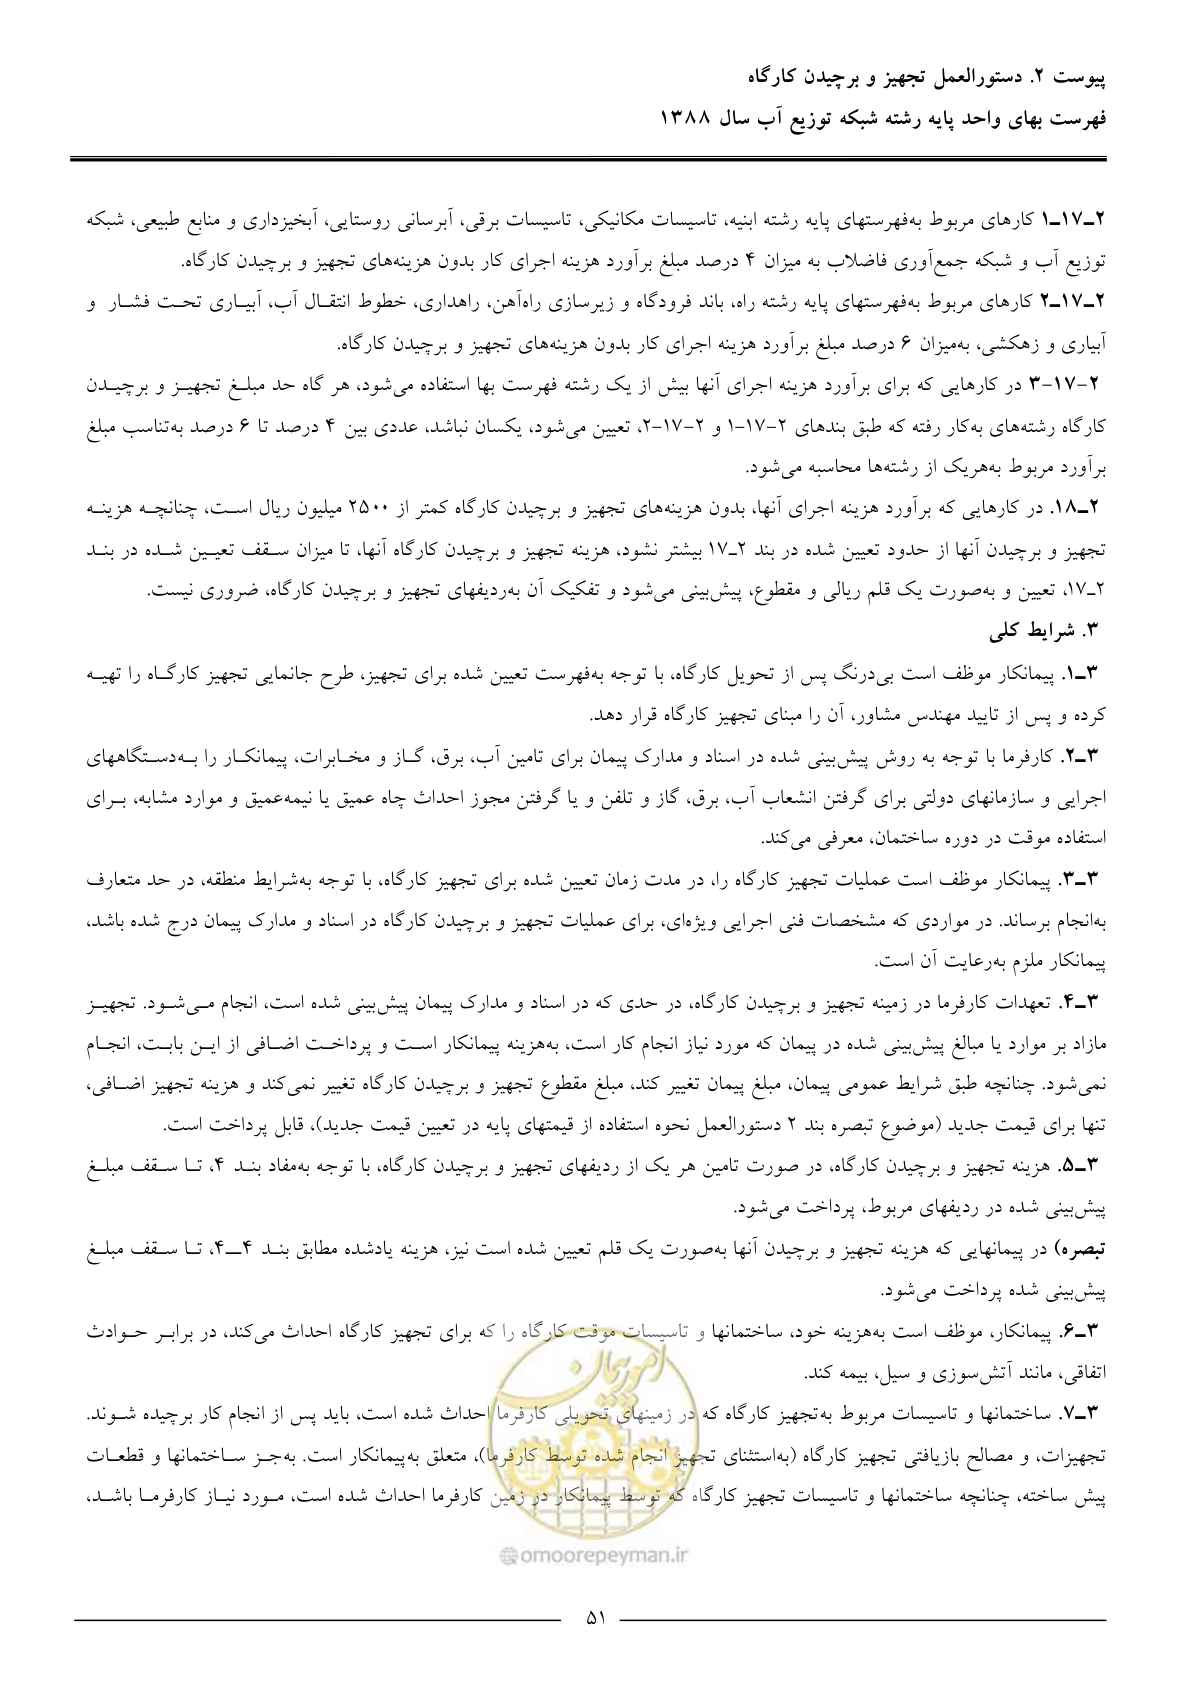 پیوست ۲. دستورالعمل تجهیز و برچیدن کارگاه
فهرست بهای واحد پایه رشته شبکه توزیع آب سال ۱۳۸۸
۲ـ۱۷ـ۱ کارهای مربوط به‌فهرستهای پایه رشته ابنیه، تاسیسات مکانیکی، تاسیسات برقی، آبرسانی روستایی، آبخیزداری و منابع طبیعی، شبکه
توزیع آب و شبکه جمع‌آوری فاضلاب به میزان ۴ درصد مبلغ برآورد هزینه اجرای کار بدون هزینه‌های تجهیز و برچیدن کارگاه.
۲ـ۱۷ـ۲ کارهای مربوط به‌فهرستهای پایه رشته راه، باند فرودگاه و زیرسازی راه‌آهن، راهداری، خطوط انتقـال آب، آبیـاری تحـت فشـار و
آبیاری و زهکشی، به‌میزان ۶ درصد مبلغ برآورد هزینه اجرای کار بدون هزینه‌های تجهیز و برچیدن کارگاه.
۲-۱۷-۳ در کارهایی که برای برآورد هزینه اجرای آنها بیش از یک رشته فهرست بها استفاده می‌شود، هر گاه حد مبلـغ تجهیـز و برچیـدن
کارگاه رشته‌های به‌کار رفته که طبق بندهای ۲-۱۷-۱ و ۲-۱۷-۲، تعیین می‌شود، یکسان نباشد، عددی بین ۴ درصد تا ۶ درصد به‌تناسب مبلغ
برآورد مربوط به‌هریک از رشته‌ها محاسبه می‌شود.
۲ـ۱۸. در کارهایی که برآورد هزینه اجرای آنها، بدون هزینه‌های تجهیز و برچیدن کارگاه کمتر از ۲۵۰۰ میلیون ریال اسـت، چنانچـه هزینـه
تجهیز و برچیدن آنها از حدود تعیین شده در بند ۲ـ۱۷ بیشتر نشود، هزینه تجهیز و برچیدن کارگاه آنها، تا میزان سـقف تعیـین شـده در بنـد
۲ـ۱۷، تعیین و به‌صورت یک قلم ریالی و مقطوع، پیش‌بینی می‌شود و تفکیک آن به‌ردیفهای تجهیز و برچیدن کارگاه، ضروری نیست.
۳. شرایط کلی
۳ـ۱. پیمانکار موظف است بی‌درنگ پس از تحویل کارگاه، با توجه به‌فهرست تعیین شده برای تجهیز، طرح جانمایی تجهیز کارگـاه را تهیـه
کرده و پس از تایید مهندس مشاور، آن را مبنای تجهیز کارگاه قرار دهد.
۳ـ۲. کارفرما با توجه به روش پیش‌بینی شده در اسناد و مدارک پیمان برای تامین آب، برق، گـاز و مخـابرات، پیمانکـار را بـه‌دسـتگاههای
اجرایی و سازمانهای دولتی برای گرفتن انشعاب آب، برق، گاز و تلفن و یا گرفتن مجوز احداث چاه عمیق یا نیمه‌عمیق و موارد مشابه، بـرای
استفاده موقت در دوره ساختمان، معرفی می‌کند.
۳ـ۳. پیمانکار موظف است عملیات تجهیز کارگاه را، در مدت زمان تعیین شده برای تجهیز کارگاه، با توجه به‌شرایط منطقه، در حد متعارف
به‌انجام برساند. در مواردی که مشخصات فنی اجرایی ویژه‌ای، برای عملیات تجهیز و برچیدن کارگاه در اسناد و مدارک پیمان درج شده باشد،
پیمانکار ملزم به‌رعایت آن است.
۳ـ۴. تعهدات کارفرما در زمینه تجهیز و برچیدن کارگاه، در حدی که در اسناد و مدارک پیمان پیش‌بینی شده است، انجام مـی‌شـود. تجهیـز
مازاد بر موارد یا مبالغ پیش‌بینی شده در پیمان که مورد نیاز انجام کار است، به‌هزینه پیمانکار اسـت و پرداخـت اضـافی از ایـن بابـت، انجـام
نمی‌شود. چنانچه طبق شرایط عمومی پیمان، مبلغ پیمان تغییر کند، مبلغ مقطوع تجهیز و برچیدن کارگاه تغییر نمی‌کند و هزینه تجهیز اضـافی،
تنها برای قیمت جدید (موضوع تبصره بند ۲ دستورالعمل نحوه استفاده از قیمتهای پایه در تعیین قیمت جدید)، قابل پرداخت است.
۳ـ۵. هزینه تجهیز و برچیدن کارگاه، در صورت تامین هر یک از ردیفهای تجهیز و برچیدن کارگاه، با توجه به‌مفاد بنـد ۴، تـا سـقف مبلـغ
پیش‌بینی شده در ردیفهای مربوط، پرداخت می‌شود.
تبصره) در پیمانهایی که هزینه تجهیز و برچیدن آنها به‌صورت یک قلم تعیین شده است نیز، هزینه یادشده مطابق بنـد ۴ــ۴، تـا سـقف مبلـغ
پیش‌بینی شده پرداخت می‌شود.
۳ـ۶. پیمانکار، موظف است به‌هزینه خود، ساختمانها و تاسیسات موقت کارگاه را که برای تجهیز کارگاه احداث می‌کند، در برابـر حـوادث
اتفاقی، مانند آتش‌سوزی و سیل، بیمه کند.
۳ـ۷. ساختمانها و تاسیسات مربوط به‌تجهیز کارگاه که در زمینهای تحویلی کارفرما احداث شده است، باید پس از انجام کار برچیده شـوند.
تجهیزات، و مصالح بازیافتی تجهیز کارگاه (به‌استثنای تجهیز انجام شده توسط کارفرما)، متعلق به‌پیمانکار است. به‌جـز سـاختمانها و قطعـات
پیش ساخته، چنانچه ساختمانها و تاسیسات تجهیز کارگاه که توسط پیمانکار در زمین کارفرما احداث شده است، مـورد نیـاز کارفرمـا باشـد،
امور پیمان
@omoorepeyman.ir
۵۱